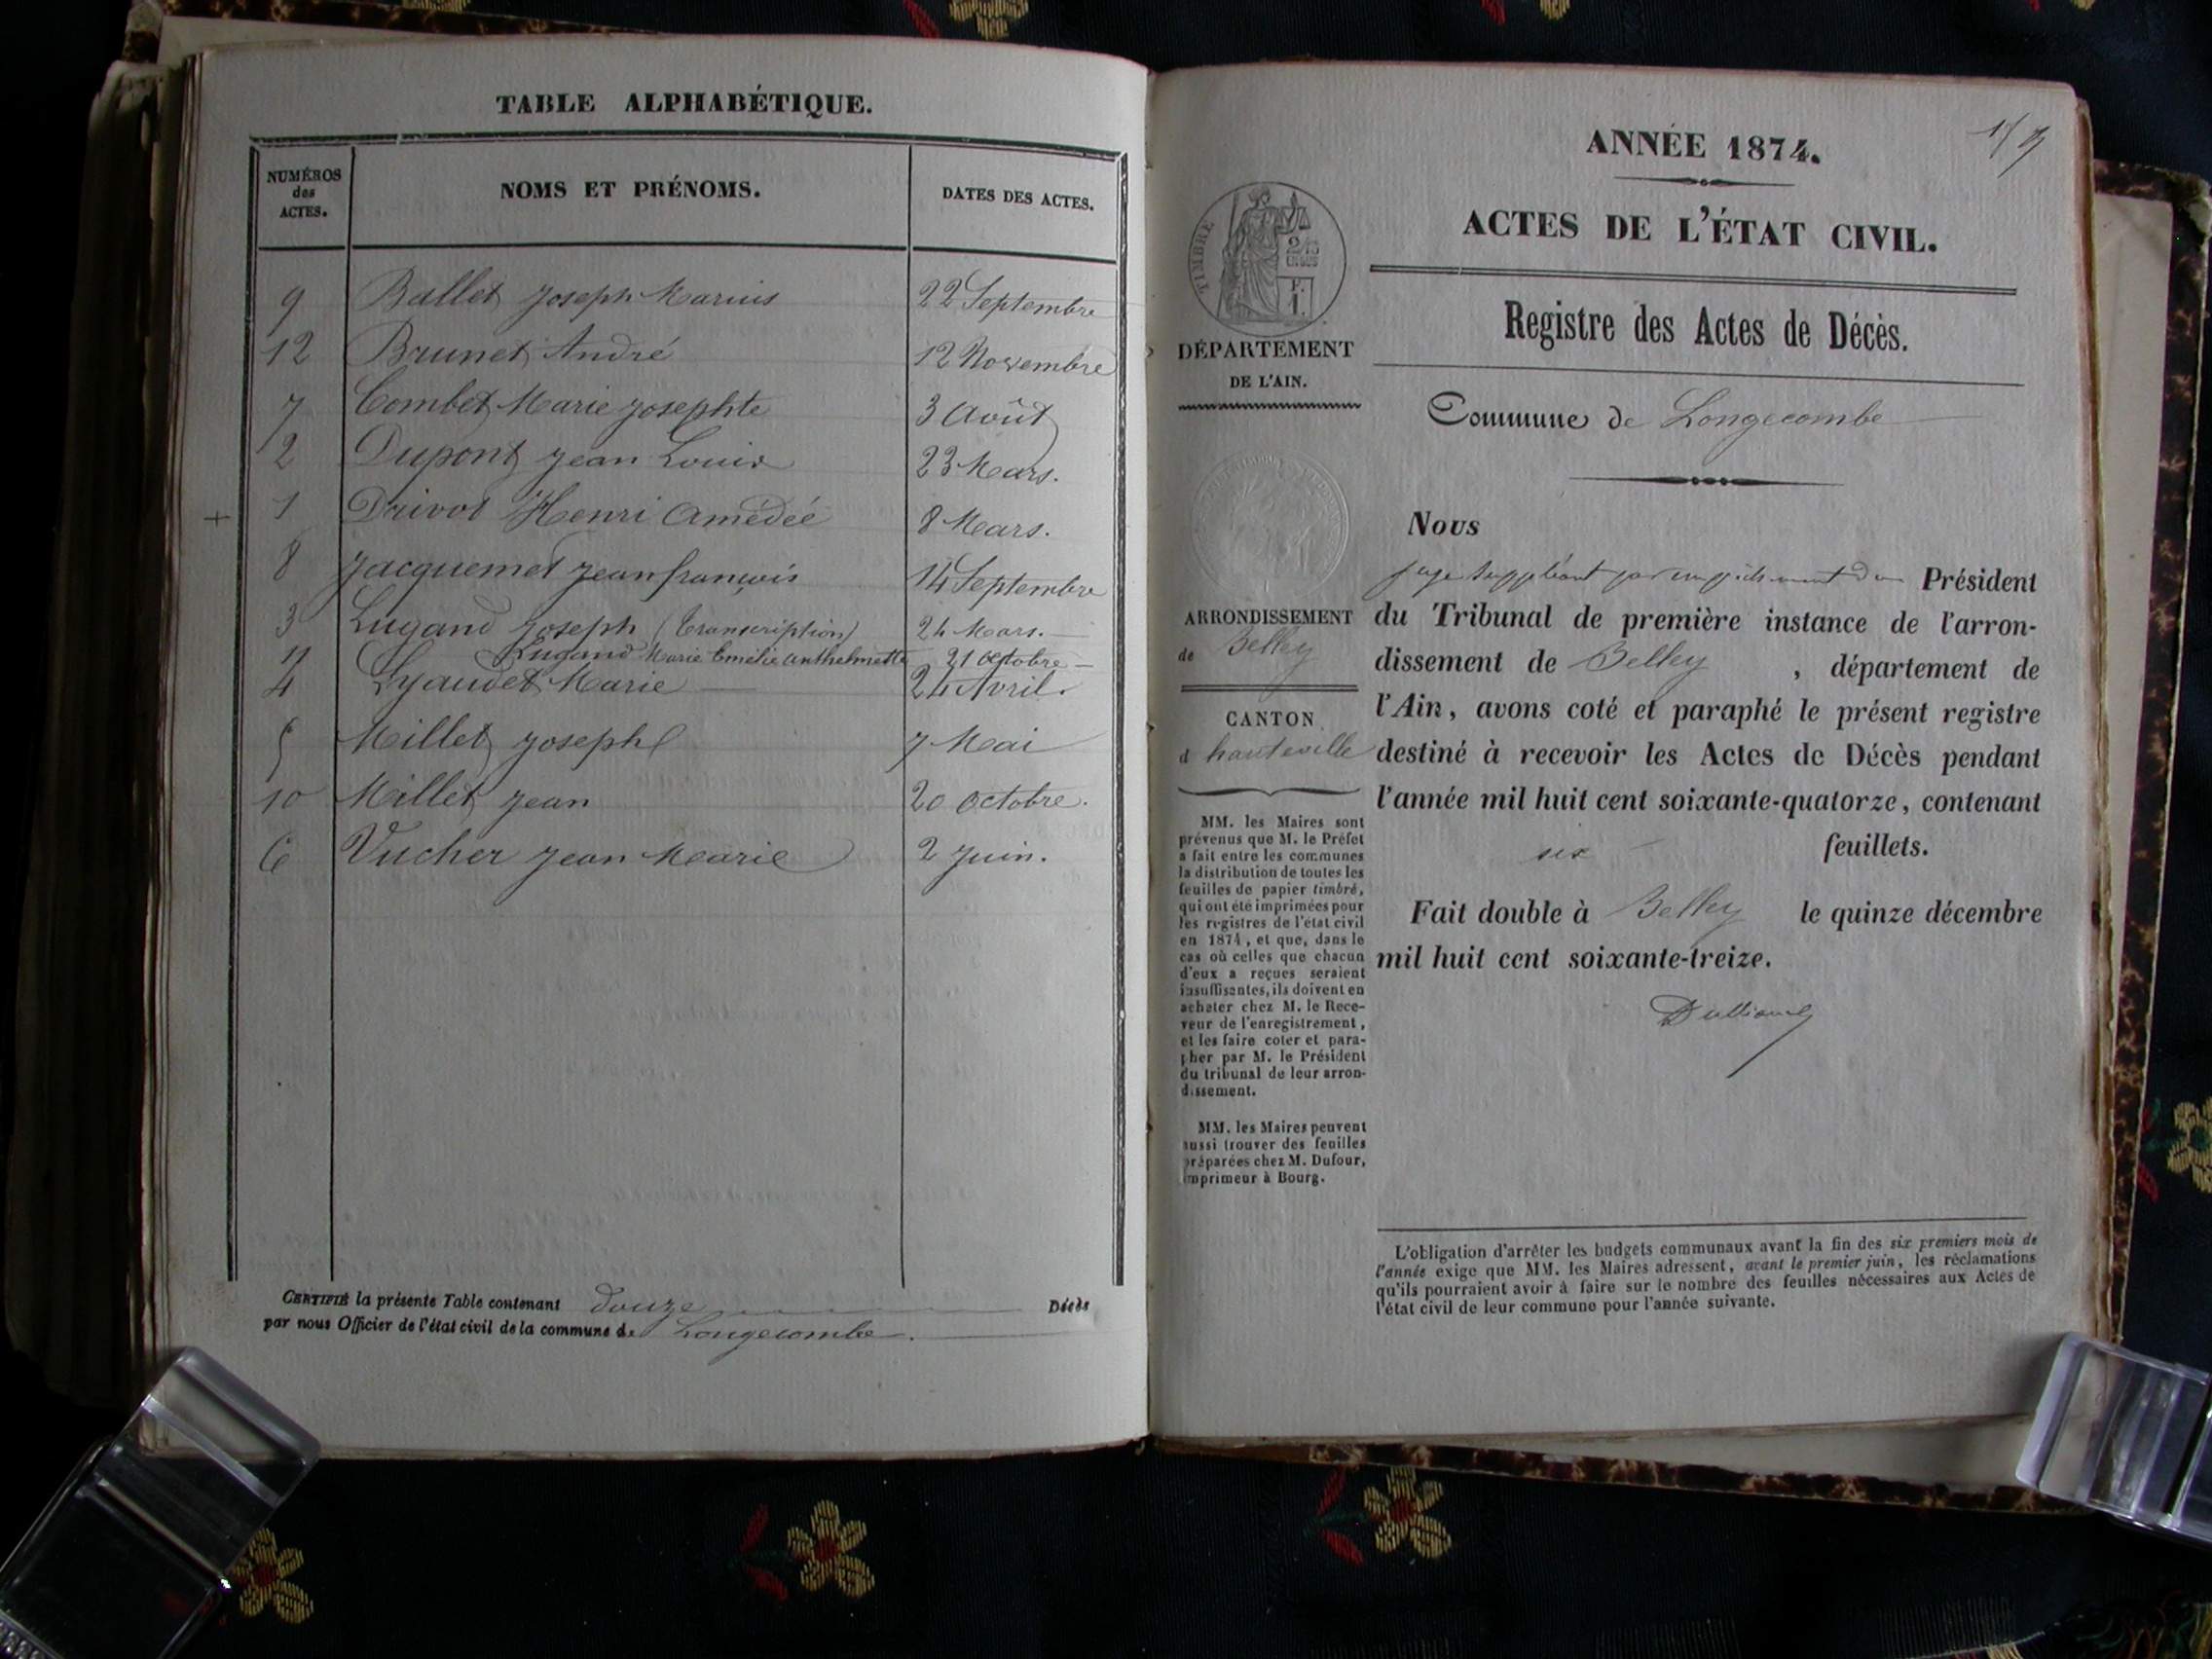 TABLE ALPHABÉTIQUE.
NUMÉROS des ACTES.
NOMS ET PRÉNOMS.
DATES DES ACTES.
9 Ballet Joseph Marius 22 Septembre
12 Brunet André 12 Novembre
7 Combet Marie Josephte 3 Août
2 Dupont Jean Louis 23 Mars.
1 Drivot Henri Amédéé 8 Mars.
8 Jacquemet Jean françois 14 Septembre
3 Lugand Joseph (transcription) 24 Mars.
11 Lugand Marie Emélie Anthelmette 21 octobre
4 Lyaudet Marie 24 Avril.
5 Millet Joseph 7 Mai
10 Millet Jean 20 octobre.
6 Vucher Jean Marie 2 Juin.
CERTIFIÉ la présente Table contenant douze Décès
par nous Officier de l'état civil de la commune de Longecombe.
ANNÉE 1874.
ACTES DE L'ÉTAT CIVIL.
Registre des Actes de Décès.
Commune de Longecombe
TIMBRE
2/10
EN SUS
F.
1.
DÉPARTEMENT
DE L'AIN.
ARRONDISSEMENT
de Belley
CANTON
d hauteville
MM. les Maires sont
prévenus que M. le Préfet
a fait entre les communes
la distribution de toutes les
feuilles de papier timbré,
qui ont été imprimées pour
les registres de l'état civil
en 1874, et que, dans le
cas où celles que chacun
d'eux a reçues seraient
insuffisantes, ils doivent en
acheter chez M. le Rece-
veur de l'enregistrement,
et les faire coter et para-
pher par M. le Président
du tribunal de leur arron-
dissement.
MM. les Maires peuvent
aussi trouver des feuilles
préparées chez M. Dufour,
imprimeur à Bourg.
Nous
juge suppléant par empêchement du Président
du Tribunal de première instance de l'arron-
dissement de Belley, département de
l'Ain, avons coté et paraphé le présent registre
destiné à recevoir les Actes de Décès pendant
l'année mil huit cent soixante-quatorze, contenant
six feuillets.
Fait double à Belley le quinze décembre
mil huit cent soixante-treize.
L'obligation d'arrêter les budgets communaux avant la fin des six premiers mois de
l'année exige que MM. les Maires adressent, avant le premier juin, les réclamations
qu'ils pourraient avoir à faire sur le nombre des feuilles nécessaires aux Actes de
l'état civil de leur commune pour l'année suivante.